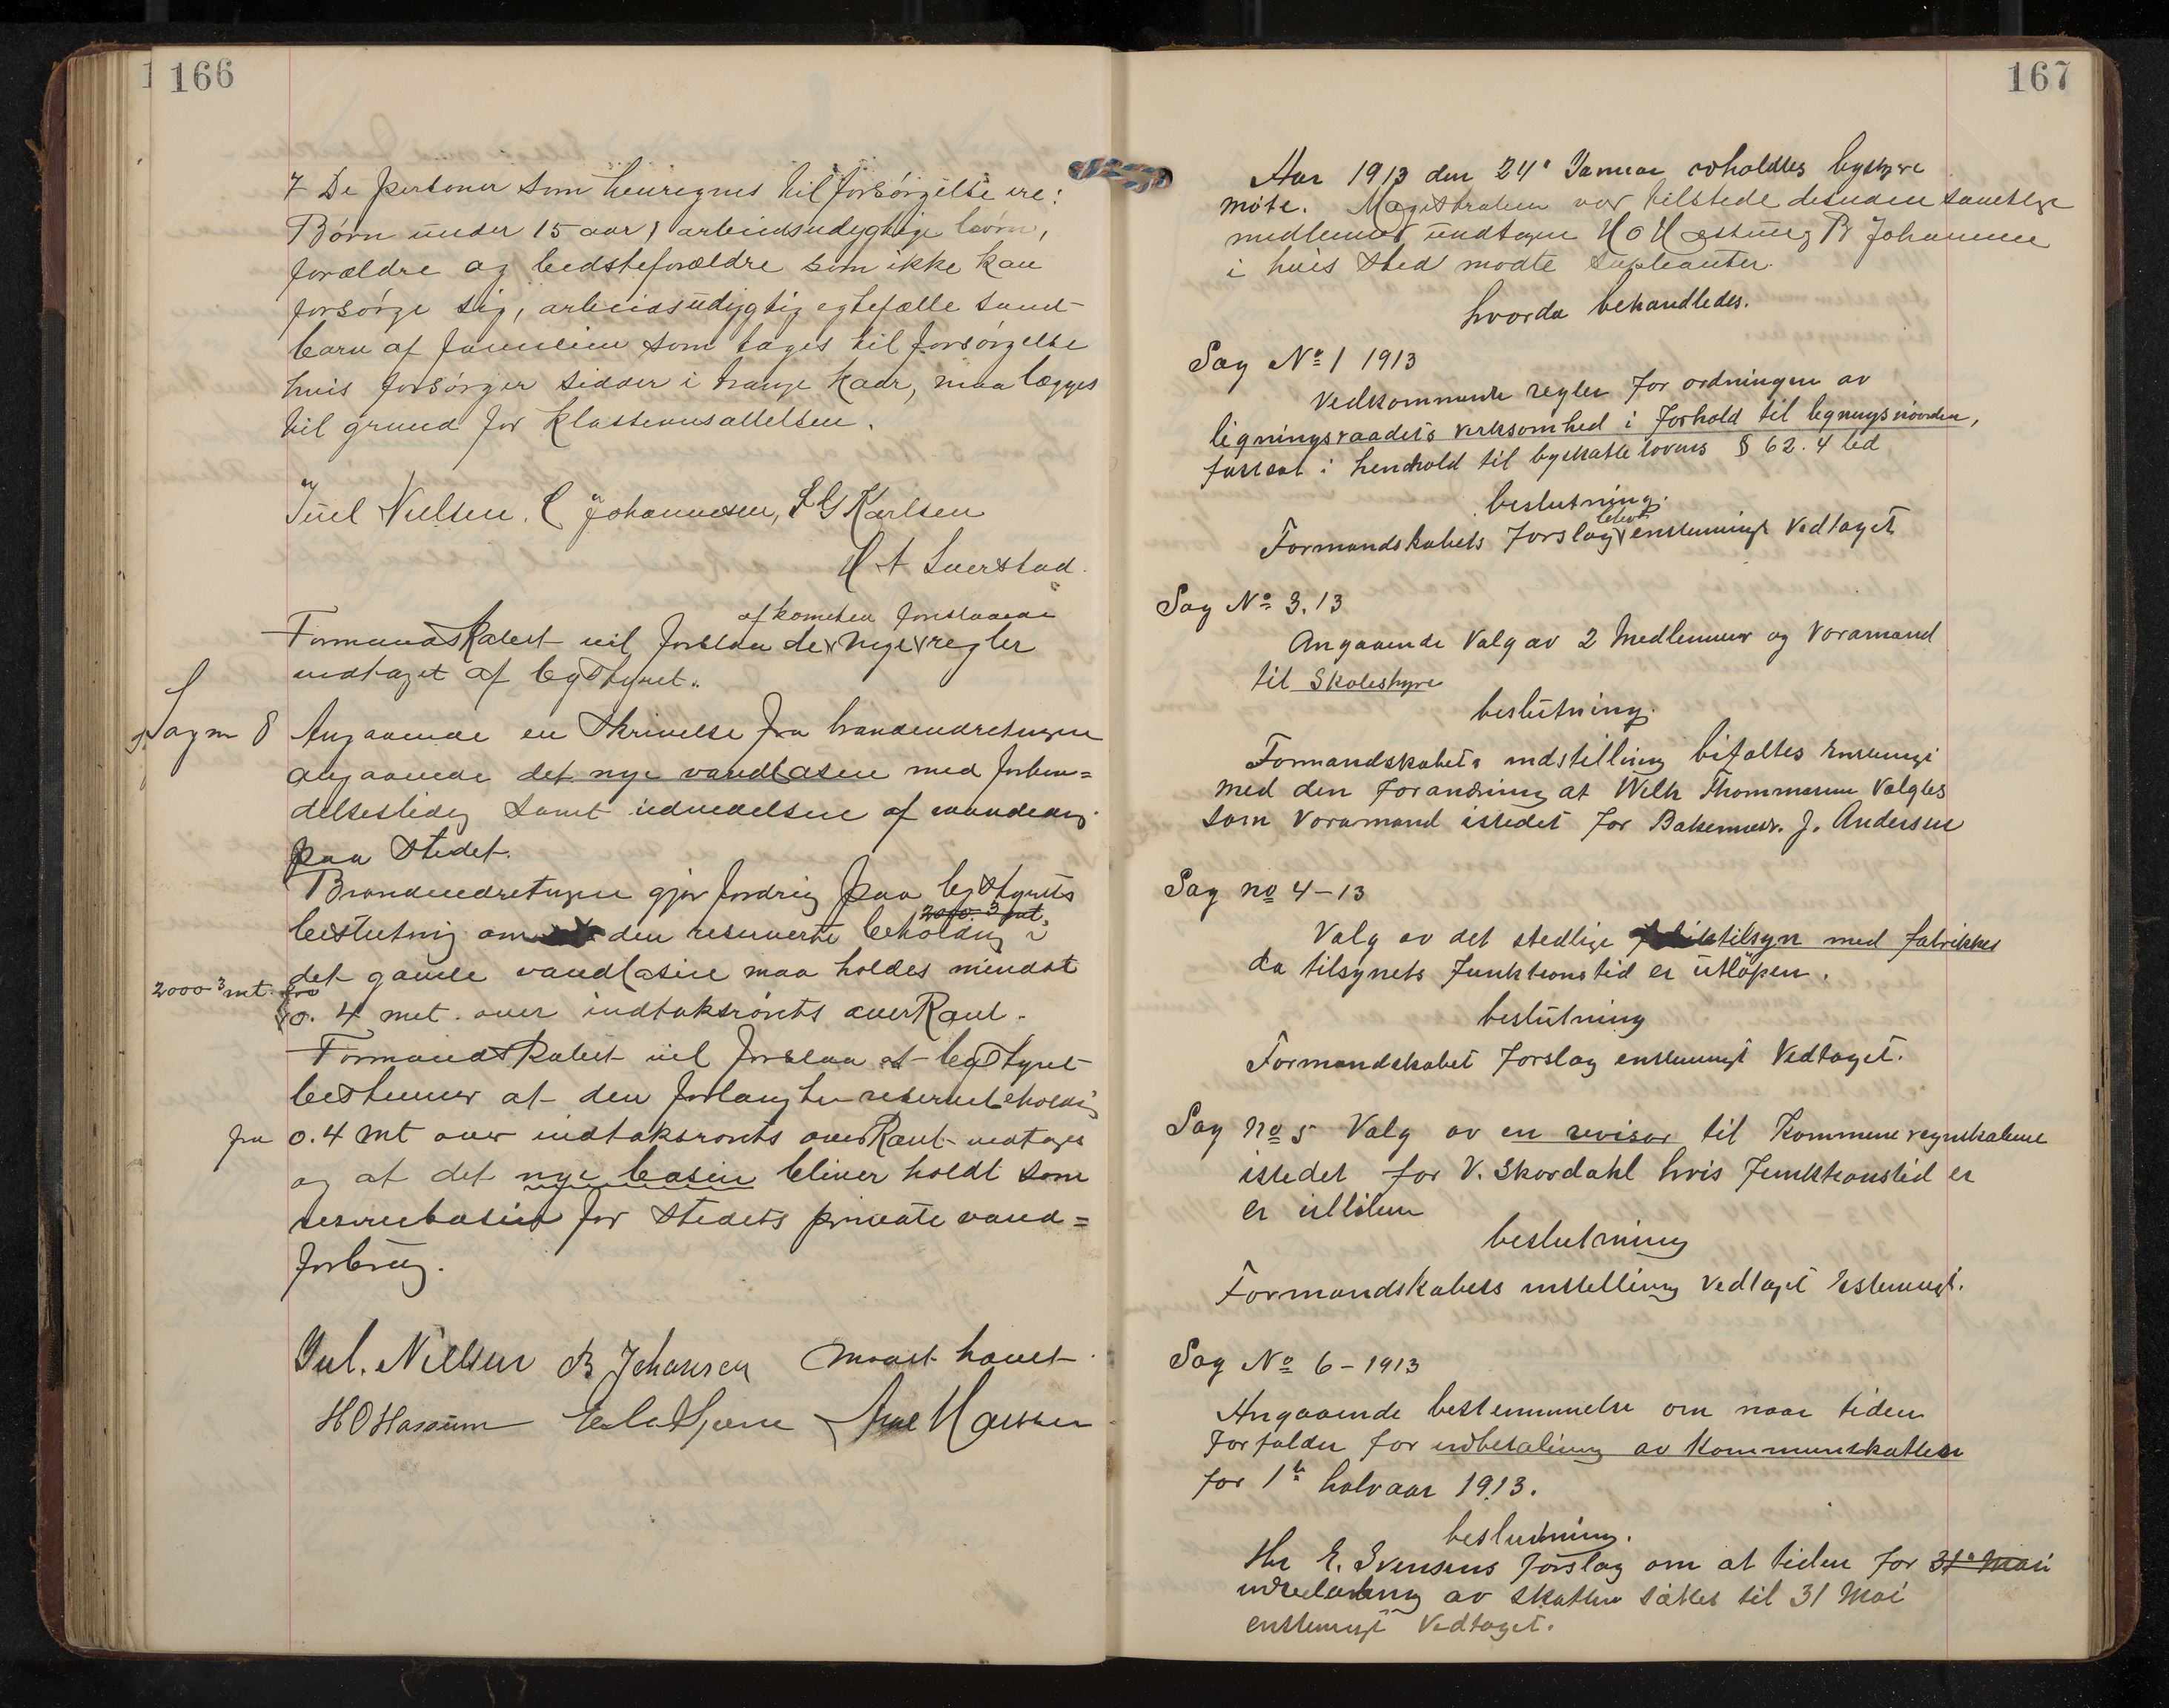 166
7 De personer som henregnes til forsørgelse ere:
Børn under 15 aar, arbeidsudygtige børn,
forældre og bedsteforældre som ikke kan
forsørge sig, arbeidsudygtig egtefælle samt
barn af familien som tages til forsørgelse
hvis forsørger sidder i trange kaar, maa lægges
til grund for klasseansættelsen.
Juel Nielsen. C Johannesen, L G Karlsen
H A Laerstad.
af komiteen foreslaaede
Formandskabet vil foreslaa de nye regler
vedtaget af bystyret.
Sag no 8 Angaaende en skrivelse fra brandindretningen
angaaende det nye vandbasin med forbin=
delsesledig samt udvidelsen af vandledng
paa stedet.
Brandindretningen gjør fordrig paa bystyrets
2000 3 mt.
beslutnig om den reserverte beholdng i
det gamle vandbasin maa holdes mindst
2000 3 mt. fra
0. 4 met. over indtaksrørets overkant.
Formandskabet vil foreslaa at bystyret
bestemmer at den forlangte reservebeholdng
fra 0.4 mt over indtaksrørets overkant vedtages
og at det nye basin bliver holdt som
reservebasin for stedets private vand=
forbrug.
Jul. Nielsen B Johansen
H O Hassum
167
Aar 1913 den 24' Januar avholdtes bystyre
møte. Magistraten var tilstede desuden samtlige
medlemmer undtagen H O Hassum og B Johannsen
i hvis sted mødte supleanter.
hvorda behandledes.
Sag No 1 1913
Vedkommende regler for ordningen av
ligningsraadets virksomhed i forhold til ligningsnævnden,
fastsat i henhold til byskattelovens § 62. 4 led
beslutning.
Formandskabets forslag enstemmigt Vedtaget
Sag No 3. 13
Angaaende Valg av 2 Medlemmer og Varamand
til Skolestyre
beslutning.
Formandskabets indstilling bifaltes enstemmi
med den Forandring at Wilh Thommesen Valgtes
som Varamand istedet for Bakermest. J. Andersen
Sag no 4 - 13
Valg av det stedlige tilsyn med fabrikker
da tilsynets Funktionstid er utløpen.
beslutning
Formandskabet Forslag enstemmigt Vedtaget.
Sag no 5 Valg av en revisor til Kommuneregnskabene
istedet for V. Skordahl hvis Funktionstid er
er utløben
beslutning
Formandskabets instilling Vedtaget Estemmigt.
Sag No 6 - 1913
Angaaende bestemmmelse om naar tiden
forfalder for indbetaling av Kommuneskatten
for 1te halvaar 1913.
beslutning.
Hr E. Svensens Forslag om at tiden for 31' Mai
inbetaling av skatten sættes til 31 Mai
enstemmigt Vedtaget.